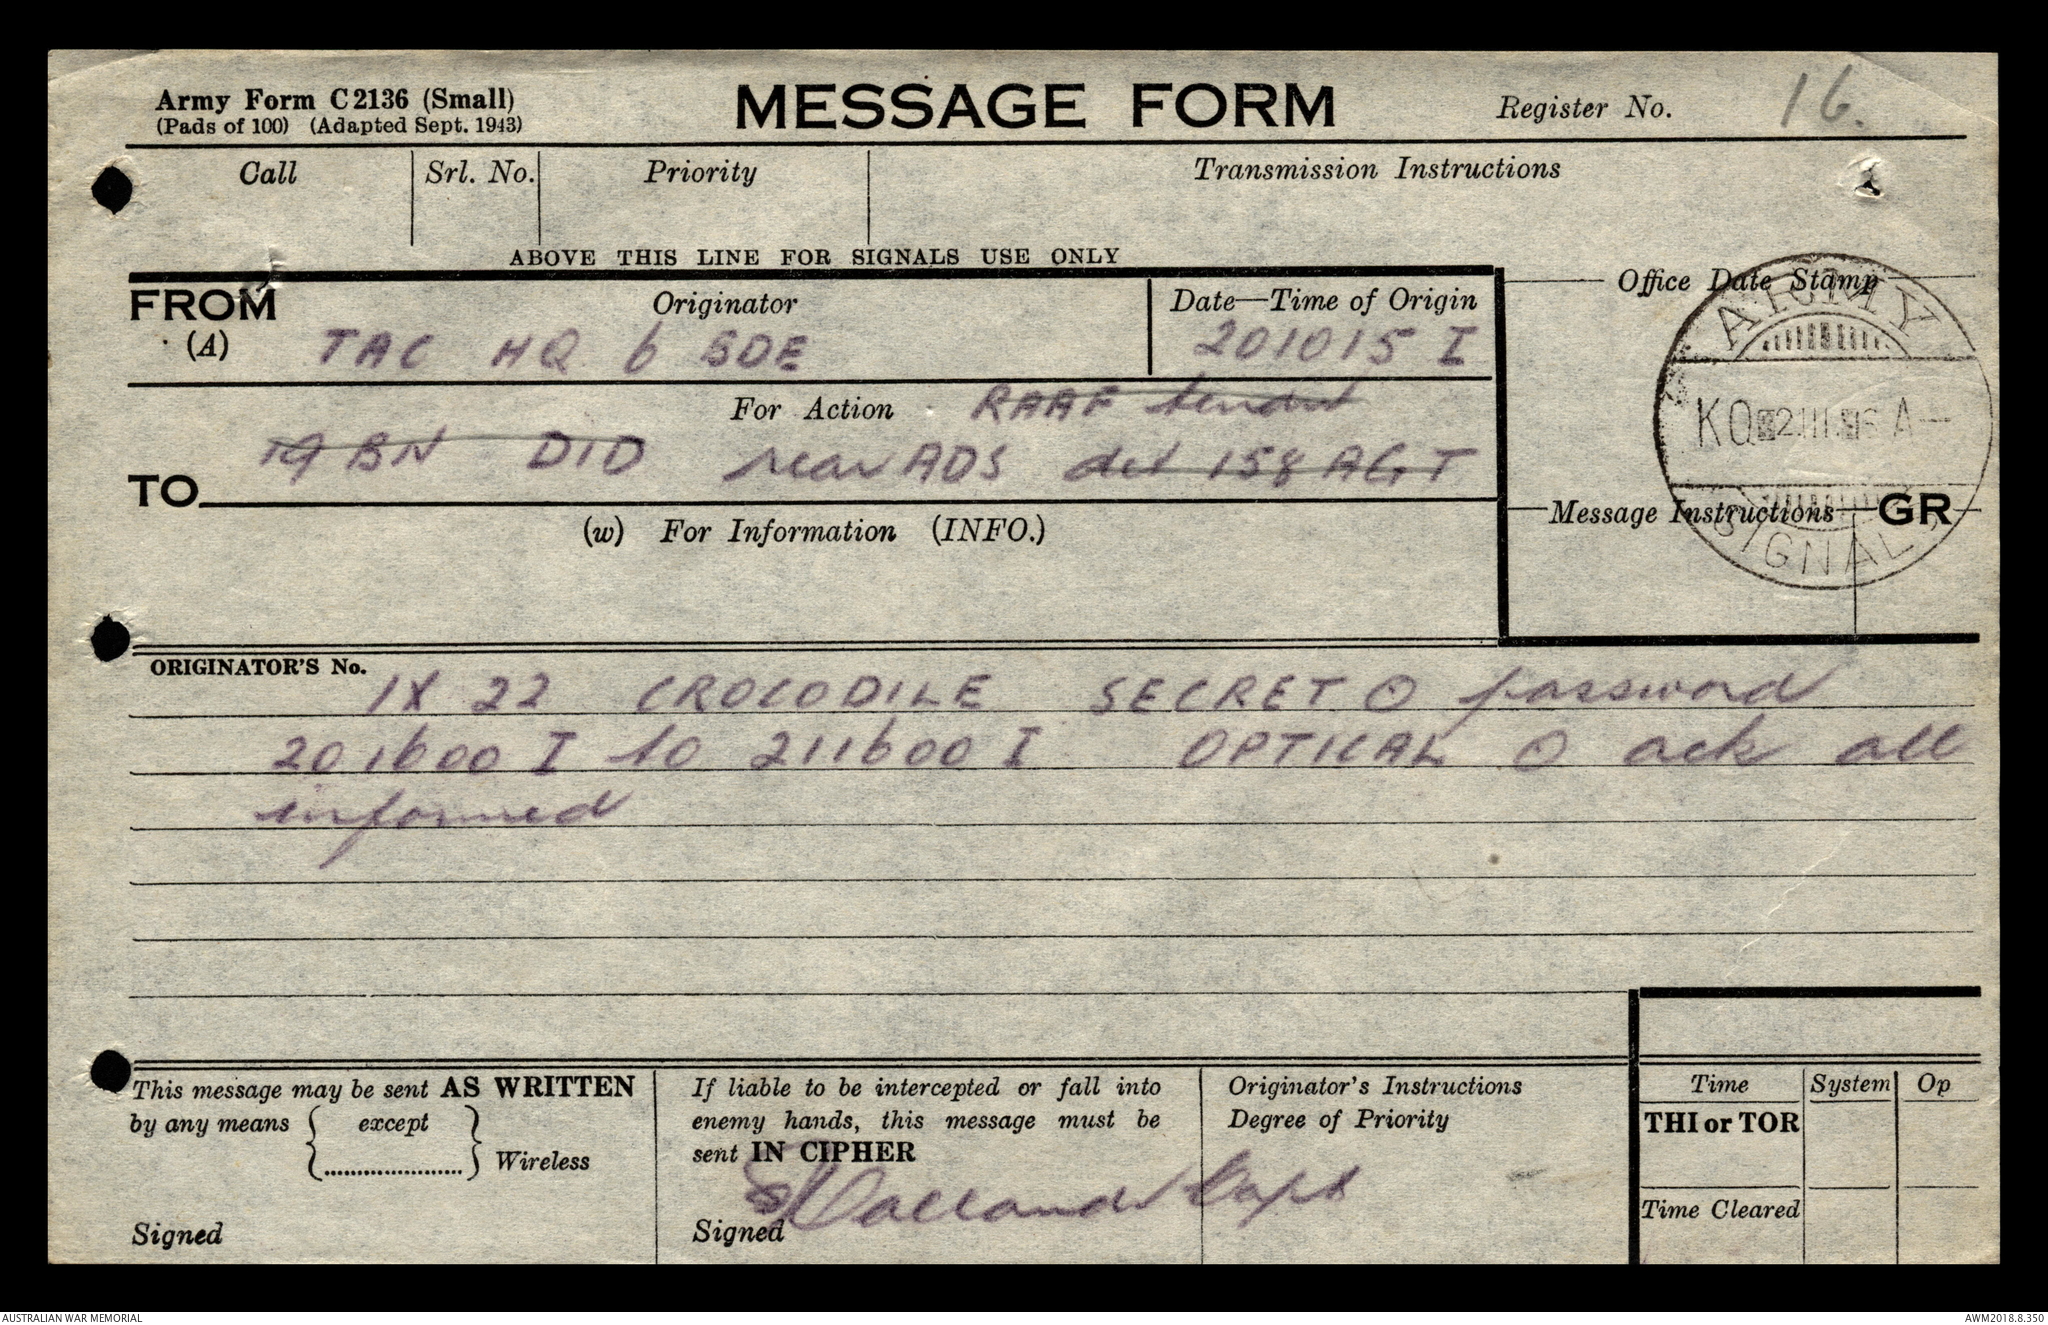 Army Form C2136 (Small)
(Pads of 100) (Adapted Sept. 1943)
MESSAGE FORM
Register No. 16.
Call
Srl. No.
Priority
Transmission Instructions
ABOVE THIS LINE FOR SIGNALS USE ONLY
FROM
(A)
Originator
TAC HQ 6 BDE
Date—Time of Origin
201015 I
Office Date Stamp
ARMY
KQ A
SIGNALS
For Action RAAF
TO
19 BN DID rear ADS det 158 AGT
Message Instructions GR
(w) For Information (INFO.)
ORIGINATOR'S No.
IX 22 CROCODILE SECRET O password
201600 I to 211600 I OPTICAL O ack all
informed
This message may be sent AS WRITTEN
by any means { except
..................... } Wireless
Signed
If liable to be intercepted or fall into
enemy hands, this message must be
sent IN CIPHER
Signed
Capt
Originator's Instructions
Degree of Priority
Time
System
Op
THI or TOR
Time Cleared
AUSTRALIAN WAR MEMORIAL
AWM2018.8.350